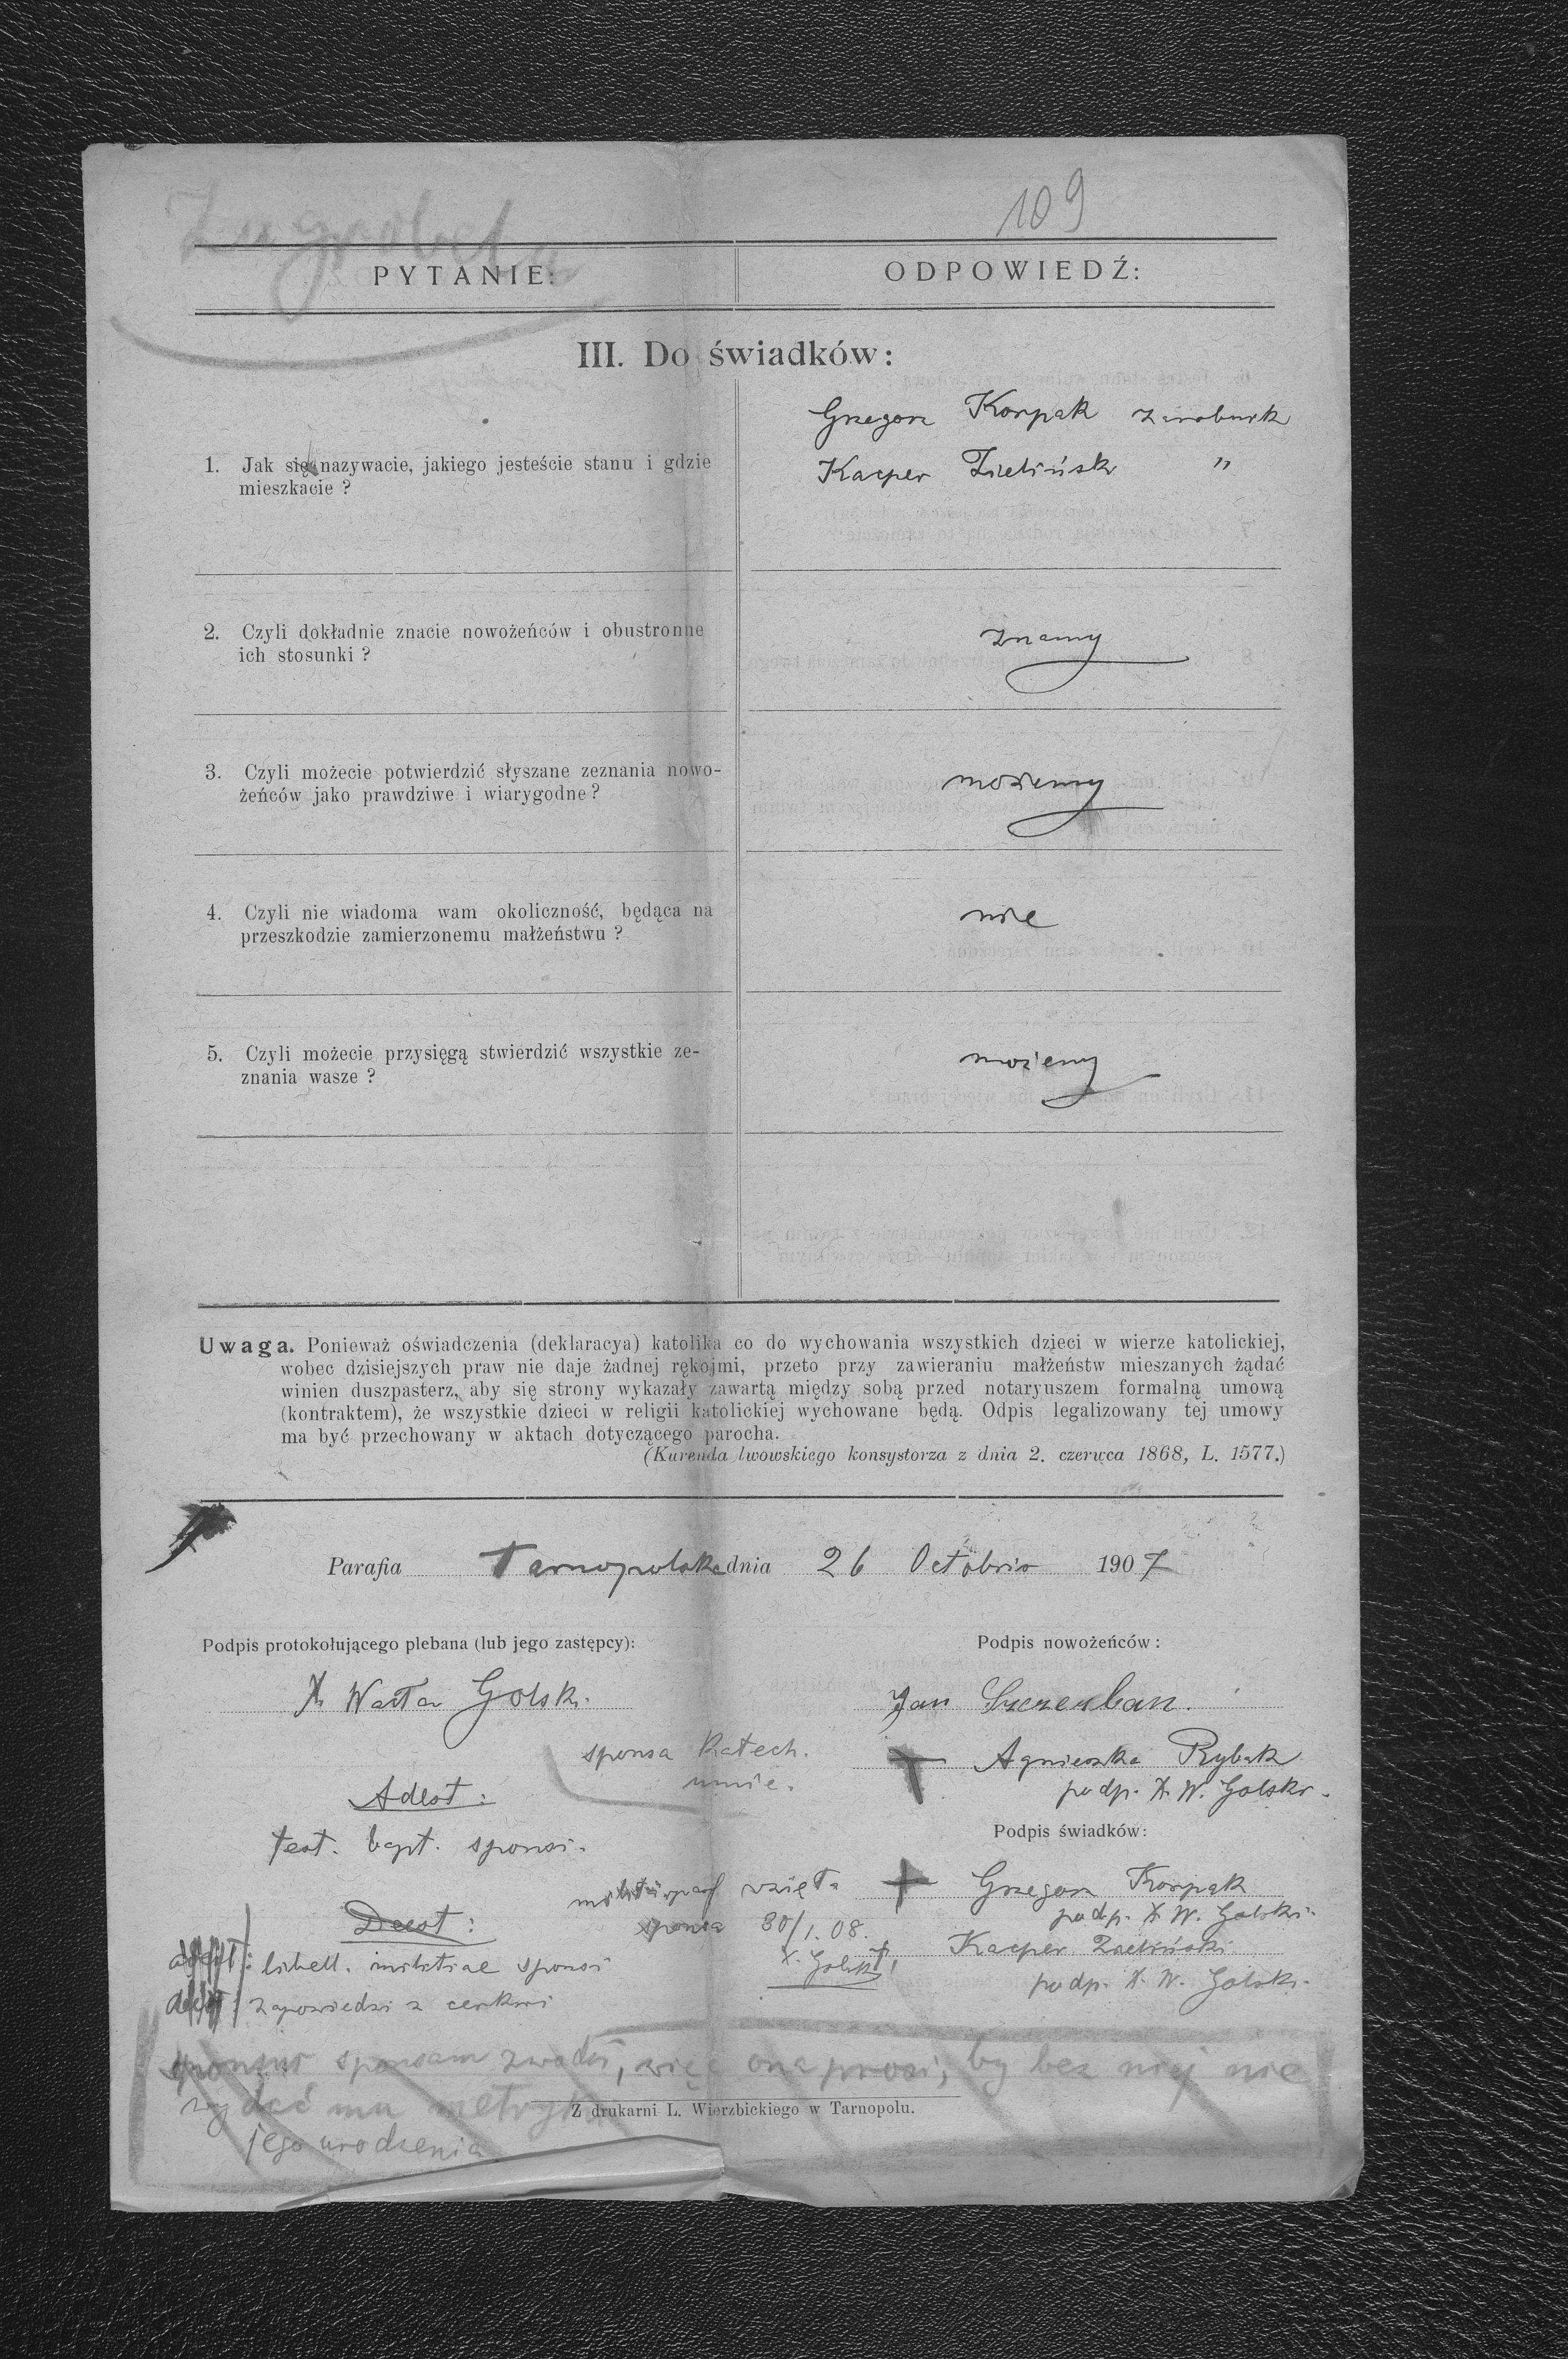 109
Zagrobela
PYTANIE:
ODPOWIEDŹ:
III. Do świadków:
1. Jak się nazywacie, jakiego jesteście stanu i gdzie
mieszkacie ?
Grzegorz Korpak zarobnik
Kacper Zieliński "
2. Czyli dokładnie znacie nowożeńców i obustronne
ich stosunki ?
znamy
3. Czyli możecie potwierdzić słyszane zeznania nowo-
żeńców jako prawdziwe i wiarygodne ?
możemy
4. Czyli nie wiadoma wam okoliczność, będąca na
przeszkodzie zamierzonemu małżeństwu ?
nie
5. Czyli możecie przysięgą stwierdzić wszystkie ze-
znania wasze ?
możemy
Uwaga. Ponieważ oświadczenia (deklaracya) katolika co do wychowania wszystkich dzieci w wierze katolickiej,
wobec dzisiejszych praw nie daje żadnej rękojmi, przeto przy zawieraniu małżeństw mieszanych żądać
winien duszpasterz, aby się strony wykazały zawartą między sobą przed notaryuszem formalną umową
(kontraktem), że wszystkie dzieci w religii katolickiej wychowane będą. Odpis legalizowany tej umowy
ma być przechowany w aktach dotyczącego parocha.
(Kurenda lwowskiego konsystorza z dnia 2. czerwca 1868, L. 1577.)
Parafia Tarnopolska dnia 26 Octobris 1907
Podpis protokołującego plebana (lub jego zastępcy):
X Wacław Golski
Podpis nowożeńców :
Jan Szczerban.
+ Agnieszka Rybak
podp. X. W. Golski.
sponsa katech.
umie.
Adest :
test. bapt. sponsi.
Podpis świadków:
+ Grzegorz Korpak
podp. X. W. Golski.
+ Kacper Zieliński
podp. X. W. Golski.
wzięła
sponsa 30/1. 08.
X. Golski
Deest :
libell. militiae sponsi
zapowiedzi z cerkwi
sponsus sponsam zwodzi, więc ona prosi, by bez niej nie
wydać mu metryki
jego urodzenia
Z drukarni L. Wierzbickiego w Tarnopolu.